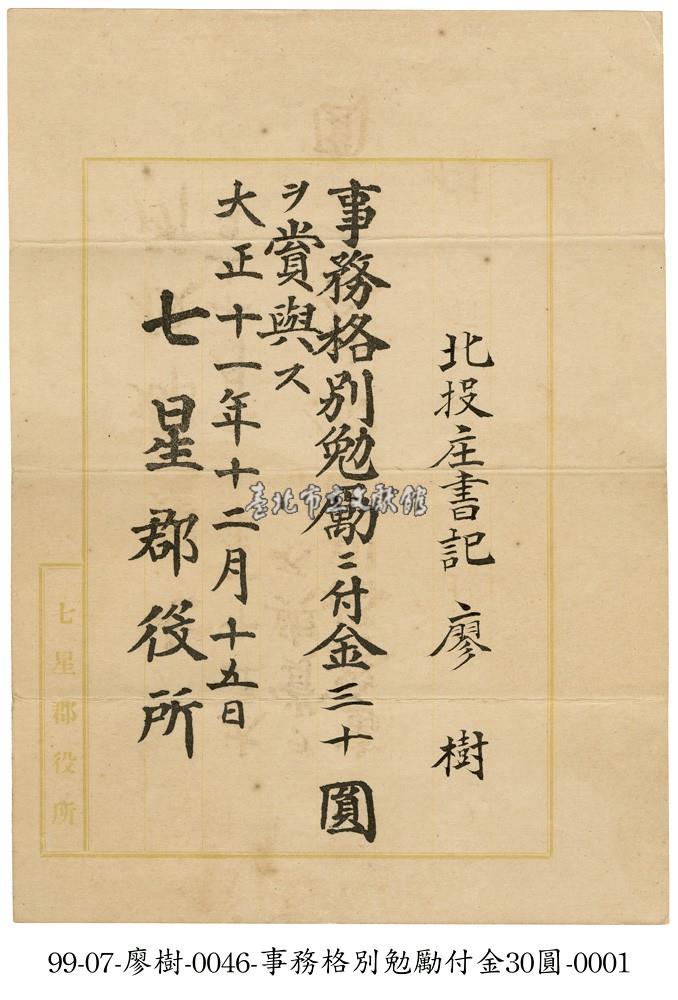 北投庄書記 廖 樹
事務格別勉勵ニ付金三十圓
ヲ賞與ス
大正十一年十二月十五日
七星郡役所
七星郡役所
臺北市立文獻館
99-07-廖樹-0046-事務格別勉勵付金30圓-0001